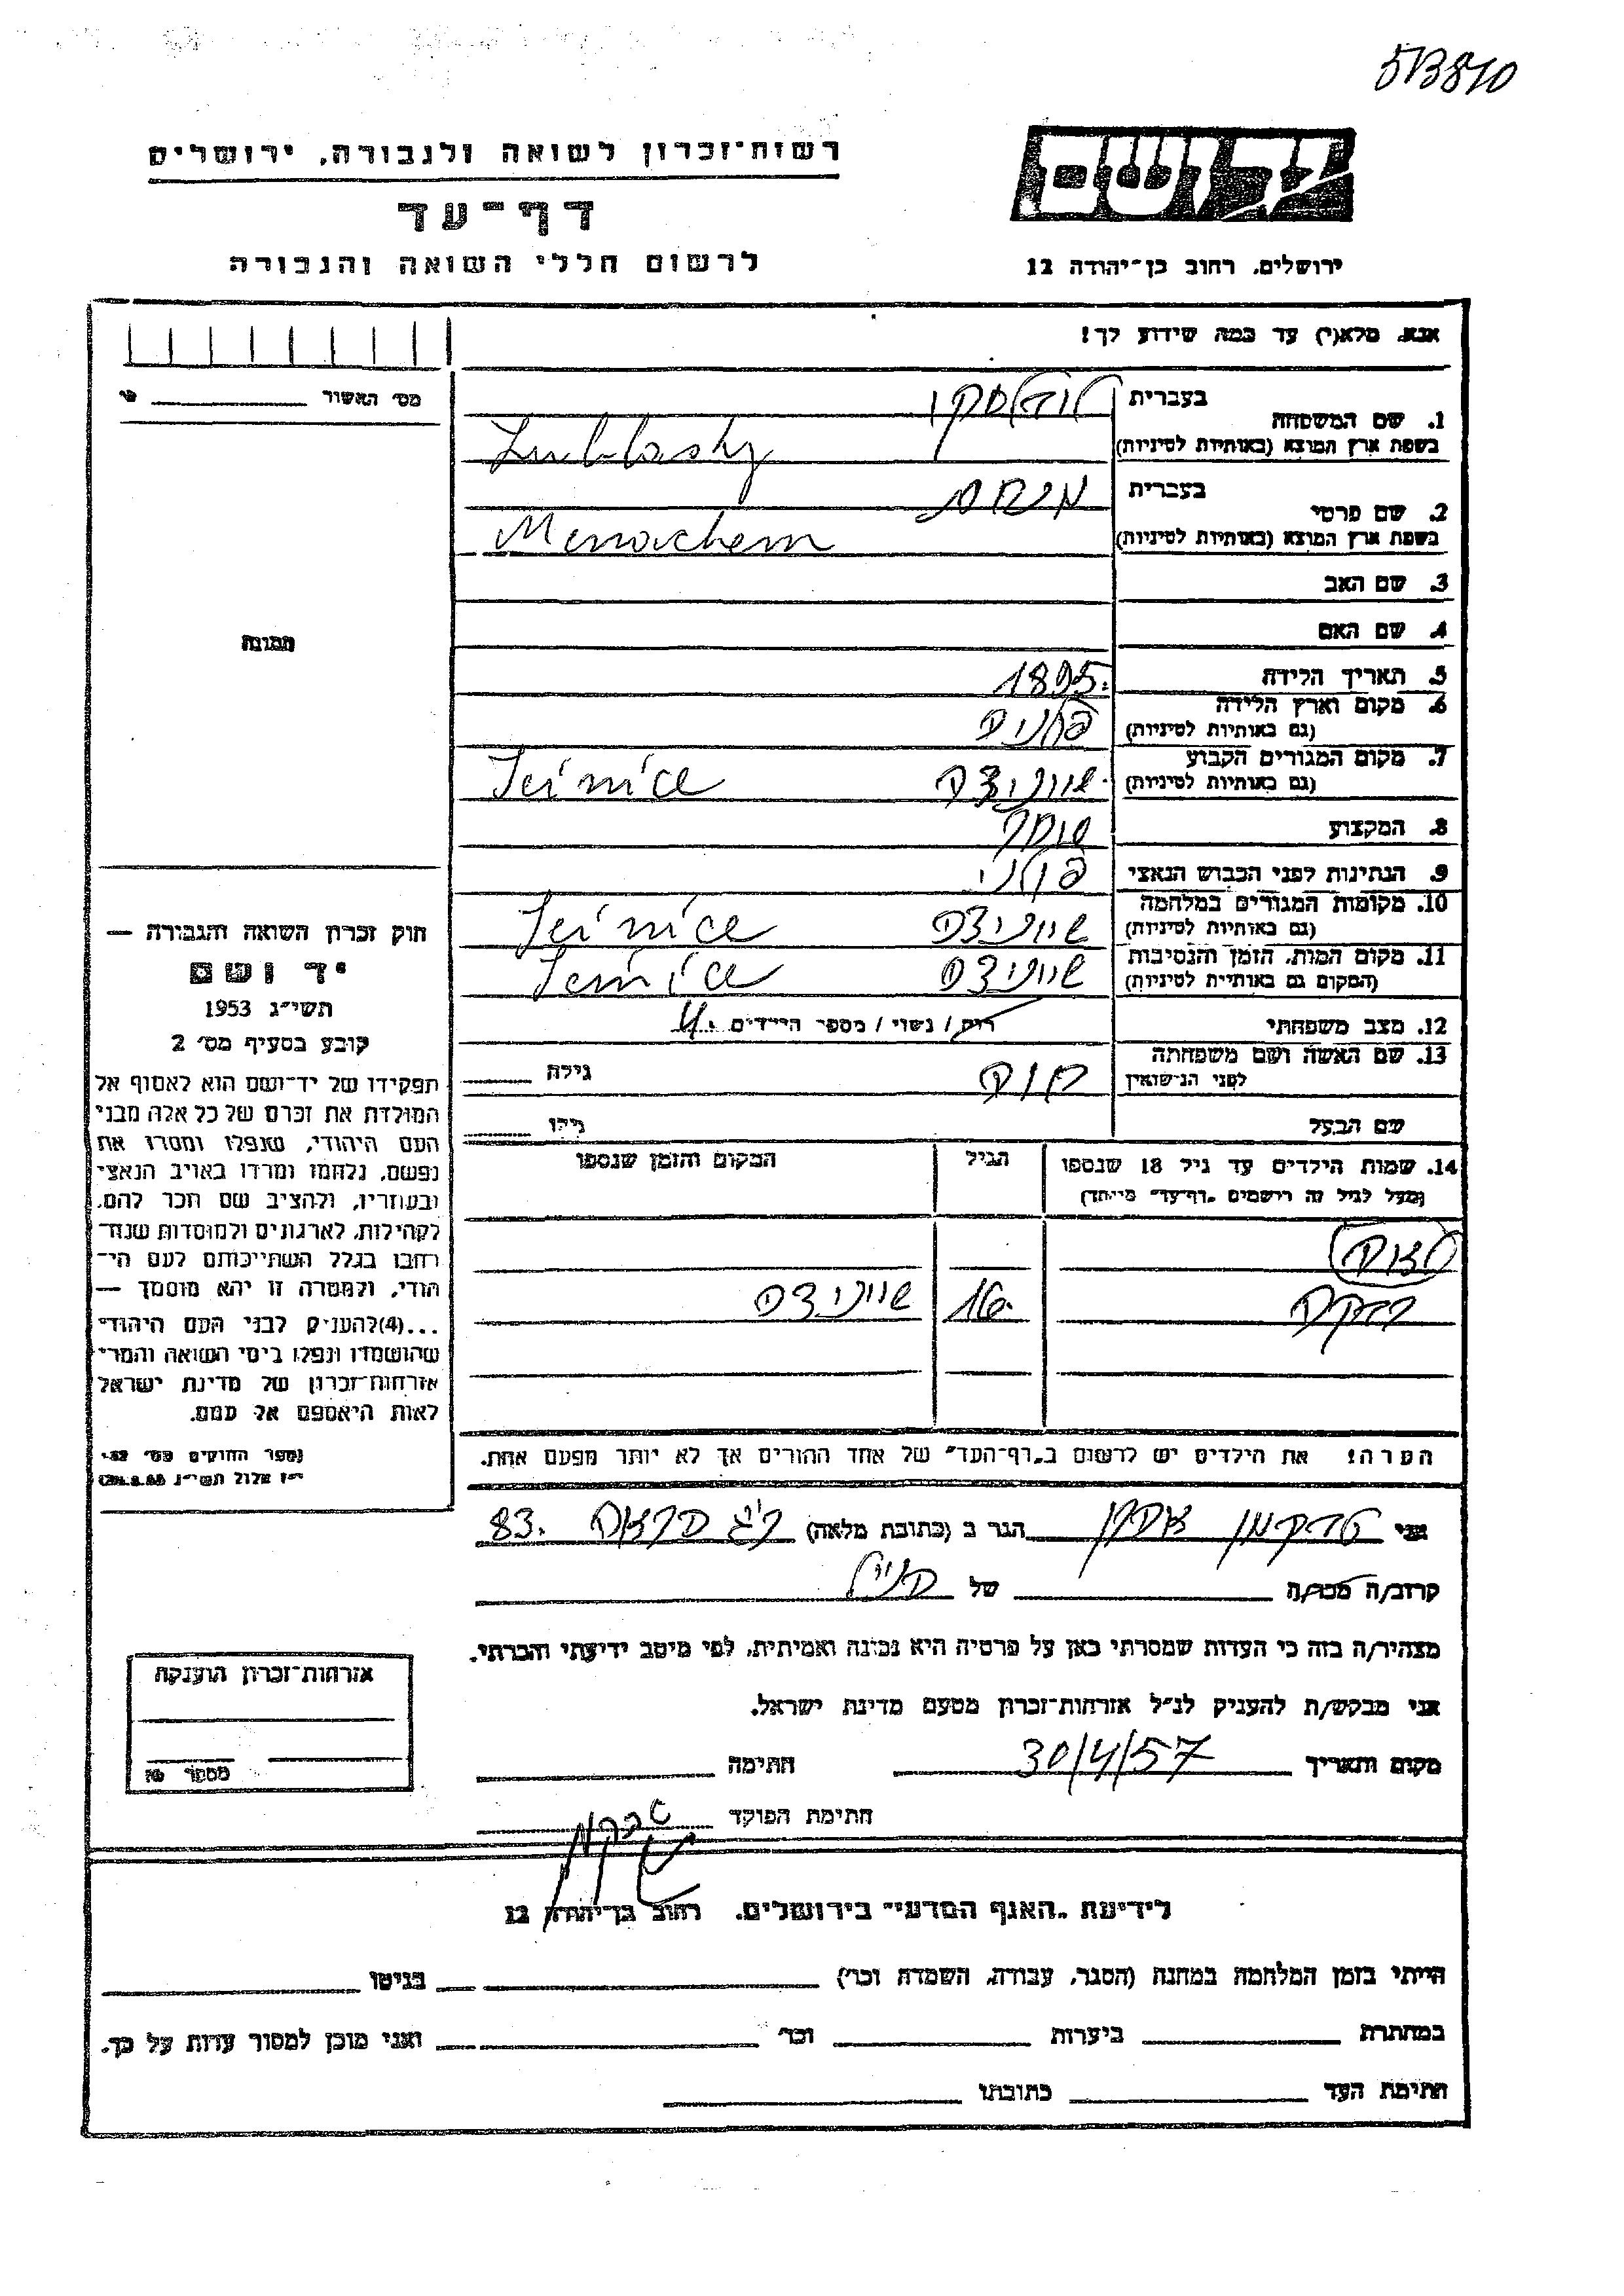 573810
רשות-זכרון לשואה ולגבורה, ירושלים
יד ושם
דף-עד
לרשום חללי השואה והגבורה
ירושלים, רחוב בן-יהודה 12
אנא, מלא(י) עד כמה שידוע לך!
מס' האשור
1. שם המשפחה
בעברית
בשפת ארץ המוצא (באותיות לטיניות)
2. שם פרטי
בעברית מנחם
בשפת ארץ המוצא (באותיות לטיניות) Menachem
3. שם האב
4. שם האם
תמונה
5. תאריך הלידה 1895
6. מקום וארץ הלידה
(גם באותיות לטיניות) פולניה
7. מקום המגורים הקבוע
(גם באותיות לטיניות)
8. המקצוע סוחר
9. הנתינות לפני הכבוש הנאצי פולני
10. מקומות המגורים במלחמה
(גם באותיות לטיניות)
11. מקום המות, הזמן והנסיבות
(המקום גם באותיות לטיניות)
12. מצב משפחתי רוק / נשוי / מספר הילדים 4.
13. שם האשה ושם משפחתה
לפני הנישואין גילה
שם הבעל גילו
14. שמות הילדים עד גיל 18 שנספו הגיל המקום והזמן שנספו
(מעל לגיל זה רושמים "דף-עד" מיוחד)
רבקה 16
הערה! את הילדים יש לרשום ב"דף-העד" של אחד ההורים אך לא יותר מפעם אחת.
חוק זכרון השואה והגבורה —
יד ושם
תשי"ג 1953
קובע בסעיף מס' 2
תפקידו של יד-ושם הוא לאסוף אל
המולדת את זכרם של כל אלה מבני
העם היהודי, שנפלו ומסרו את
נפשם, נלחמו ומרדו באויב הנאצי
ובעוזריו, ולהציב שם וזכר להם,
לקהילות, לארגונים ולמוסדות שנח-
רבו בגלל השתייכותם לעם הי-
הודי, ולמטרה זו יהא מוסמך —
...(4) להעניק לבני העם היהודי
שהושמדו ונפלו בימי השואה והמרי
אזרחות-זכרון של מדינת ישראל
לאות היאספם אל עמם.
(ספר החוקים מס' 132
י"ז אלול תשי"ג
אני הגר ב (כתובת מלאה) 83.
קרוב/ה מכר/ה של
מצהיר/ה בזה כי העדות שמסרתי כאן על פרטיה היא נכונה ואמיתית, לפי מיטב ידיעתי והכרתי.
אני מבקש/ת להעניק לנ"ל אזרחות-זכרון מטעם מדינת ישראל.
מקום ותאריך 30/4/57 חתימה
חתימת הפוקד
אזרחות-זכרון הוענקה
מספר
לידיעת "האגף המדעי" בירושלים, רחוב בן-יהודה 12
הייתי בזמן המלחמה במחנה (הסגר, עבודה, השמדה וכו') בגיטו
במחתרת ביערות וכו' ואני מוכן למסור עדות על כך.
חתימת העד כתובתו